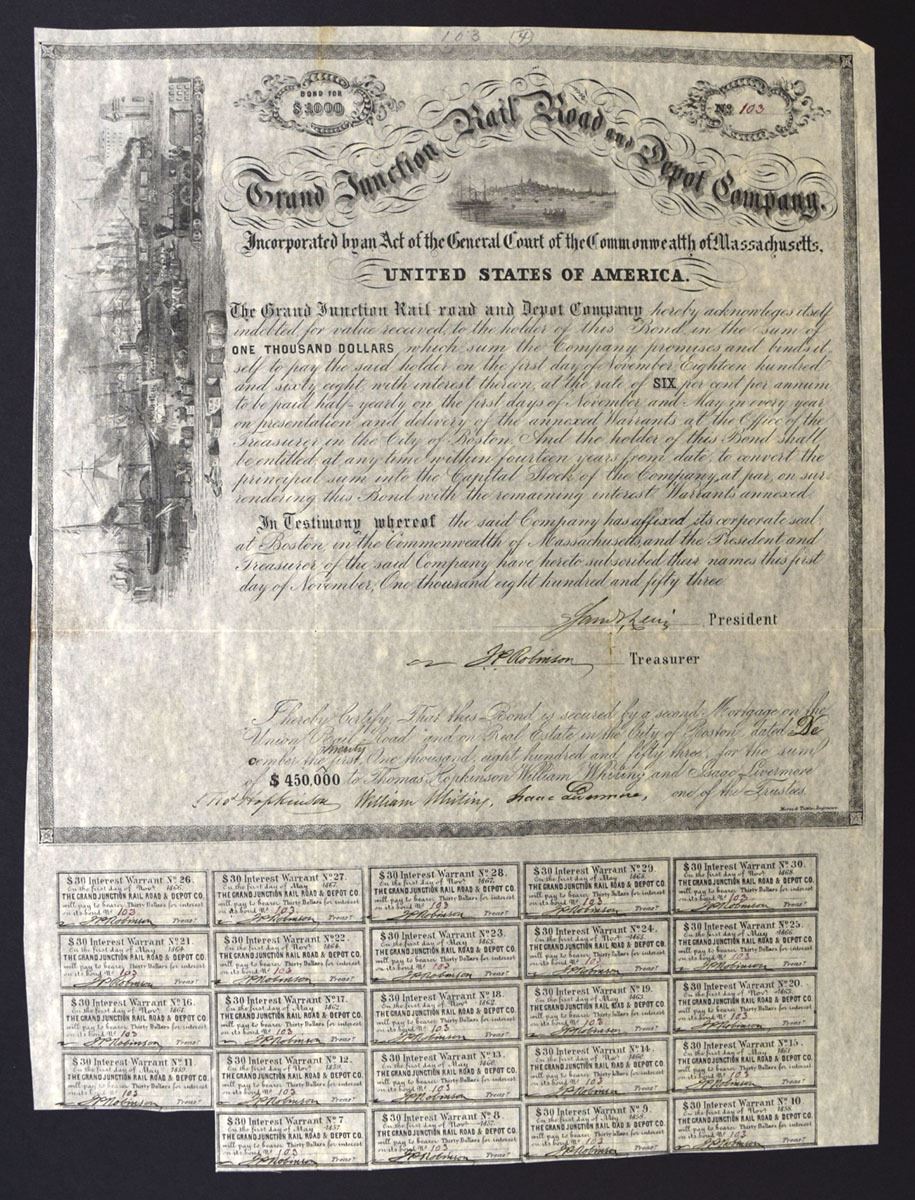 103 (4)
BOND FOR
$1000
No. 103
Grand Junction Rail Road and Depot Company.
Incorporated by an Act of the General Court of the Commonwealth of Massachusetts.
UNITED STATES OF AMERICA.
The Grand Junction Rail-road and Depot Company hereby acknowleges itself
indebted, for value received, to the holder of this Bond in the sum of
ONE THOUSAND DOLLARS which sum the Company promises and binds it,
self to pay the said holder on the first day of November Eighteen hundred
and sixty eight, with interest thereon, at the rate of SIX per cent per annum
to be paid half-yearly on the first days of November and May in every year
on presentation and delivery of the annexed Warrants at the Office of the
Treasurer in the City of Boston. And the holder of this Bond shall
be entitled, at any time within fourteen years from date, to convert the
principal sum into the Capital Stock of the Company, at par, on sur-
rendering this Bond with the remaining interest Warrants annexed.
In Testimony whereof the said Company has affixed its corporate seal,
at Boston, in the Commonwealth of Massachusetts, and the President and
Treasurer of the said Company have hereto subscribed their names this first
day of November, One thousand eight hundred and fifty three
President
J.P. Robinson Treasurer
I hereby Certify, That this Bond is secured by a second Mortgage on the
Union Rail Road and on Real Estate in the City of Boston, dated De
twenty
cember the first, One thousand, eight hundred and fifty three, for the sum
of $450,000 to Thomas Hopkinson William Whiting and Isaac Livermore
Thos. Hopkinson William Whiting, Isaac Livermore, one of the Trustees.
$30 Interest Warrant No. 26.
On the first day of Novr. 1866.
THE GRAND JUNCTION RAIL ROAD & DEPOT CO.
will pay to bearer Thirty Dollars for interest
on its bond No. 103
J.P. Robinson Treasr.
$30 Interest Warrant No. 27.
On the first day of May 1867.
THE GRAND JUNCTION RAIL ROAD & DEPOT CO.
will pay to bearer Thirty Dollars for interest
on its bond No. 103
J.P. Robinson Treasr.
$30 Interest Warrant No. 28.
On the first day of Novr. 1867.
THE GRAND JUNCTION RAIL ROAD & DEPOT CO.
will pay to bearer Thirty Dollars for interest
on its bond No. 103
J.P. Robinson Treasr.
$30 Interest Warrant No. 29.
On the first day of May 1868.
THE GRAND JUNCTION RAIL ROAD & DEPOT CO.
will pay to bearer Thirty Dollars for interest
on its bond No. 103
J.P. Robinson Treasr.
$30 Interest Warrant No. 30.
On the first day of Novr. 1868.
THE GRAND JUNCTION RAIL ROAD & DEPOT CO.
will pay to bearer Thirty Dollars for interest
on its bond No. 103
J.P. Robinson Treasr.
$30 Interest Warrant No. 21.
On the first day of May 1864.
THE GRAND JUNCTION RAIL ROAD & DEPOT CO.
will pay to bearer Thirty Dollars for interest
on its bond No. 103
J.P. Robinson Treasr.
$30 Interest Warrant No. 22.
On the first day of Novr. 1864.
THE GRAND JUNCTION RAIL ROAD & DEPOT CO.
will pay to bearer Thirty Dollars for interest
on its bond No. 103
J.P. Robinson Treasr.
$30 Interest Warrant No. 23.
On the first day of May 1865.
THE GRAND JUNCTION RAIL ROAD & DEPOT CO.
will pay to bearer Thirty Dollars for interest
on its bond No. 103
J.P. Robinson Treasr.
$30 Interest Warrant No. 24.
On the first day of Novr. 1865.
THE GRAND JUNCTION RAIL ROAD & DEPOT CO.
will pay to bearer Thirty Dollars for interest
on its bond No. 103
J.P. Robinson Treasr.
$30 Interest Warrant No. 25.
On the first day of May 1866.
THE GRAND JUNCTION RAIL ROAD & DEPOT CO.
will pay to bearer Thirty Dollars for interest
on its bond No. 103
J.P. Robinson Treasr.
$30 Interest Warrant No. 16.
On the first day of Novr. 1861.
THE GRAND JUNCTION RAIL ROAD & DEPOT CO.
will pay to bearer Thirty Dollars for interest
on its bond No. 103
J.P. Robinson Treasr.
$30 Interest Warrant No. 17.
On the first day of May 1862.
THE GRAND JUNCTION RAIL ROAD & DEPOT CO.
will pay to bearer Thirty Dollars for interest
on its bond No. 103
J.P. Robinson Treasr.
$30 Interest Warrant No. 18.
On the first day of Novr. 1862.
THE GRAND JUNCTION RAIL ROAD & DEPOT CO.
will pay to bearer Thirty Dollars for interest
on its bond No. 103
J.P. Robinson Treasr.
$30 Interest Warrant No. 19.
On the first day of May 1863.
THE GRAND JUNCTION RAIL ROAD & DEPOT CO.
will pay to bearer Thirty Dollars for interest
on its bond No. 103
J.P. Robinson Treasr.
$30 Interest Warrant No. 20.
On the first day of Novr. 1863.
THE GRAND JUNCTION RAIL ROAD & DEPOT CO.
will pay to bearer Thirty Dollars for interest
on its bond No. 103
J.P. Robinson Treasr.
$30 Interest Warrant No. 11.
On the first day of May 1859.
THE GRAND JUNCTION RAIL ROAD & DEPOT CO.
will pay to bearer Thirty Dollars for interest
on its bond No. 103
J.P. Robinson Treasr.
$30 Interest Warrant No. 12.
On the first day of Novr. 1859.
THE GRAND JUNCTION RAIL ROAD & DEPOT CO.
will pay to bearer Thirty Dollars for interest
on its bond No. 103
J.P. Robinson Treasr.
$30 Interest Warrant No. 13.
On the first day of May 1860.
THE GRAND JUNCTION RAIL ROAD & DEPOT CO.
will pay to bearer Thirty Dollars for interest
on its bond No. 103
J.P. Robinson Treasr.
$30 Interest Warrant No. 14.
On the first day of Novr. 1860.
THE GRAND JUNCTION RAIL ROAD & DEPOT CO.
will pay to bearer Thirty Dollars for interest
on its bond No. 103
J.P. Robinson Treasr.
$30 Interest Warrant No. 15.
On the first day of May 1861.
THE GRAND JUNCTION RAIL ROAD & DEPOT CO.
will pay to bearer Thirty Dollars for interest
on its bond No. 103
J.P. Robinson Treasr.
$30 Interest Warrant No. 7.
On the first day of May 1857.
THE GRAND JUNCTION RAIL ROAD & DEPOT CO.
will pay to bearer Thirty Dollars for interest
on its bond No. 103
J.P. Robinson Treasr.
$30 Interest Warrant No. 8.
On the first day of Novr. 1857.
THE GRAND JUNCTION RAIL ROAD & DEPOT CO.
will pay to bearer Thirty Dollars for interest
on its bond No. 103
J.P. Robinson Treasr.
$30 Interest Warrant No. 9.
On the first day of May 1858.
THE GRAND JUNCTION RAIL ROAD & DEPOT CO.
will pay to bearer Thirty Dollars for interest
on its bond No. 103
J.P. Robinson Treasr.
$30 Interest Warrant No. 10
On the first day of Novr. 1858.
THE GRAND JUNCTION RAIL ROAD & DEPOT CO.
will pay to bearer Thirty Dollars for interest
on its bond No. 103
J.P. Robinson Treasr.